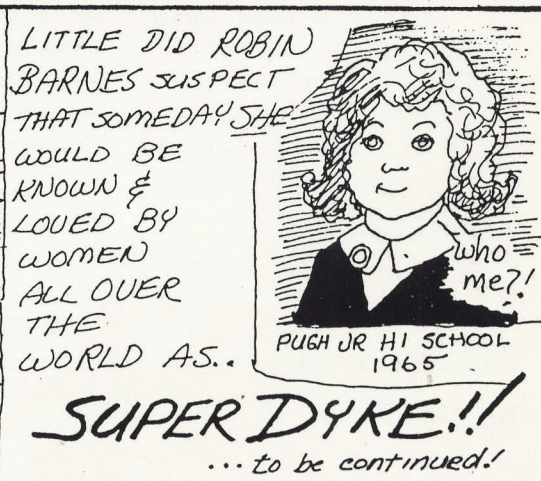 LITTLE DID ROBIN
BARNES SUSPECT
THAT SOMEDAY SHE
WOULD BE
KNOWN &
LOVED BY
WOMEN
ALL OVER
THE
WORLD AS..
who
me?!
PUGH JR HI SCHOOL
1965
SUPER DYKE!!
... to be continued!